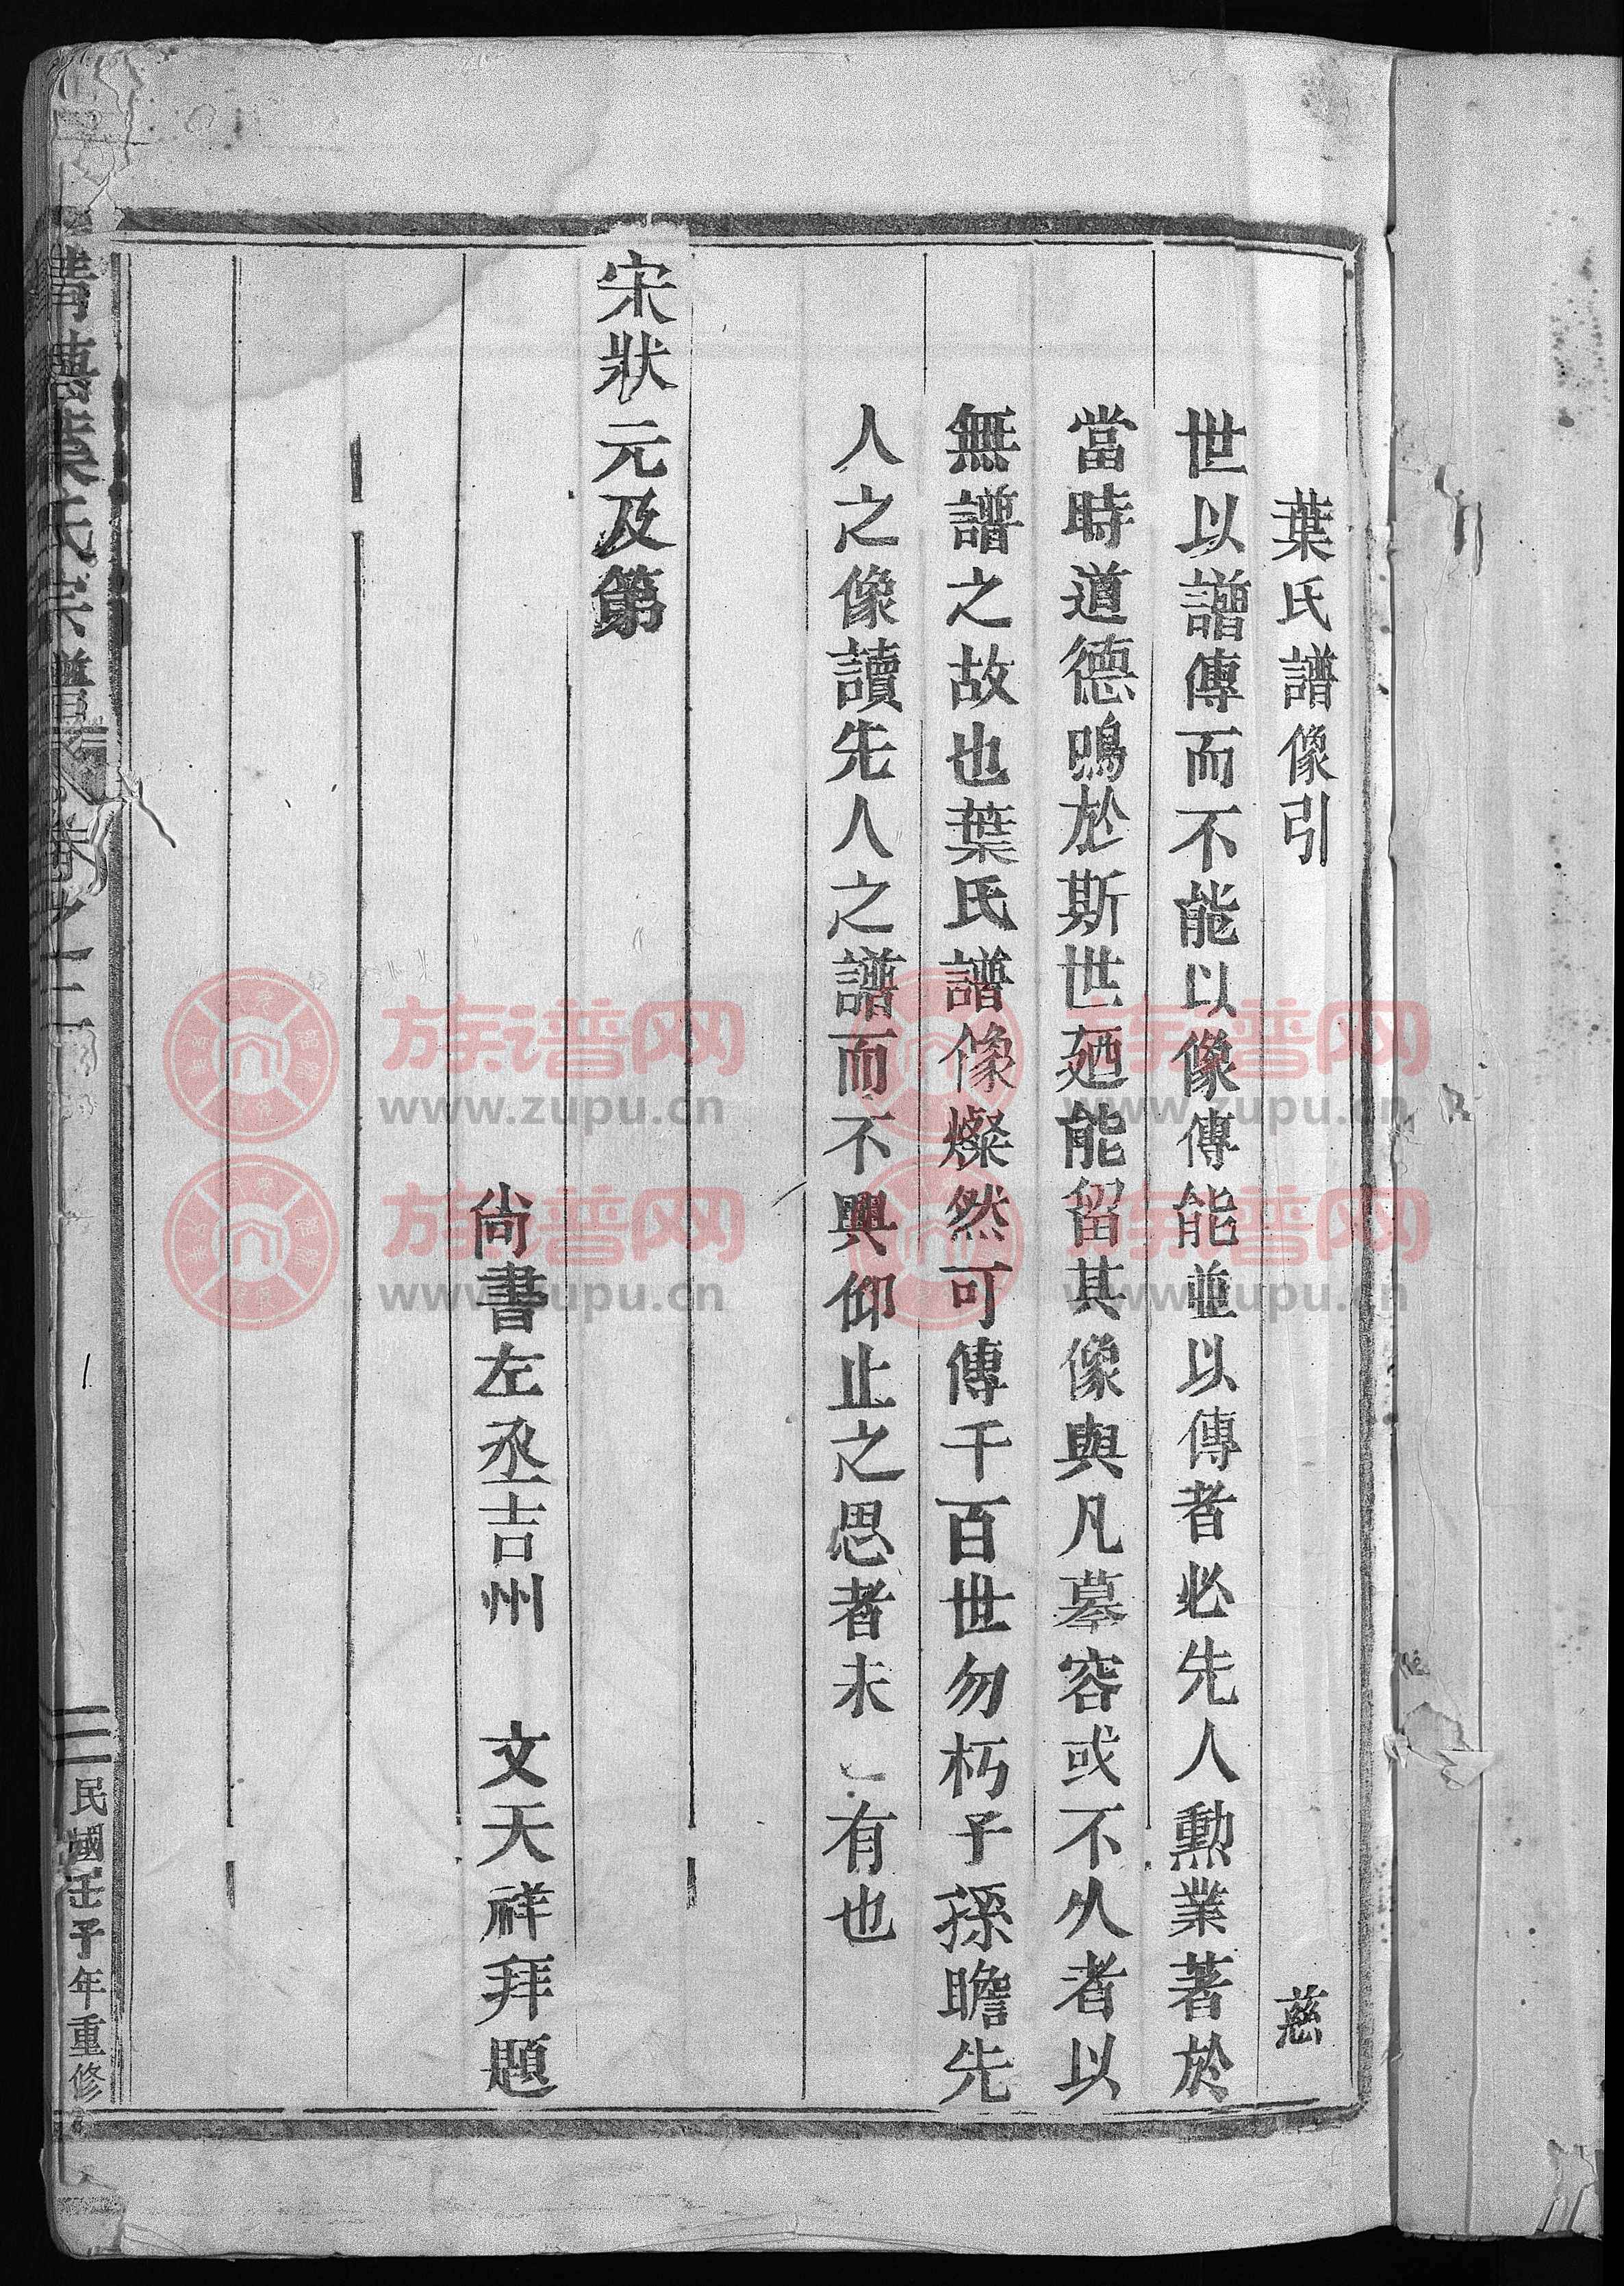 葉氏譜像引 慈
世以譜傳而不能以像傳能並以傳者必先人勲業著於
當時道德鳴於斯世廼能留其像與凡墓容或不久者以
無譜之故也葉氏譜像燦然可傳千百世勿朽子孫瞻先
人之像讀先人之譜而不興仰止之思者未 有也
宋狀元及第
尚書左丞吉州 文天祥拜題
葉氏宗譜 卷之二
三 民國壬子年重修
族谱网 族谱网
www.zupu.cn www.zupu.cn
族谱网 族谱网
www.zupu.cn www.zupu.cn